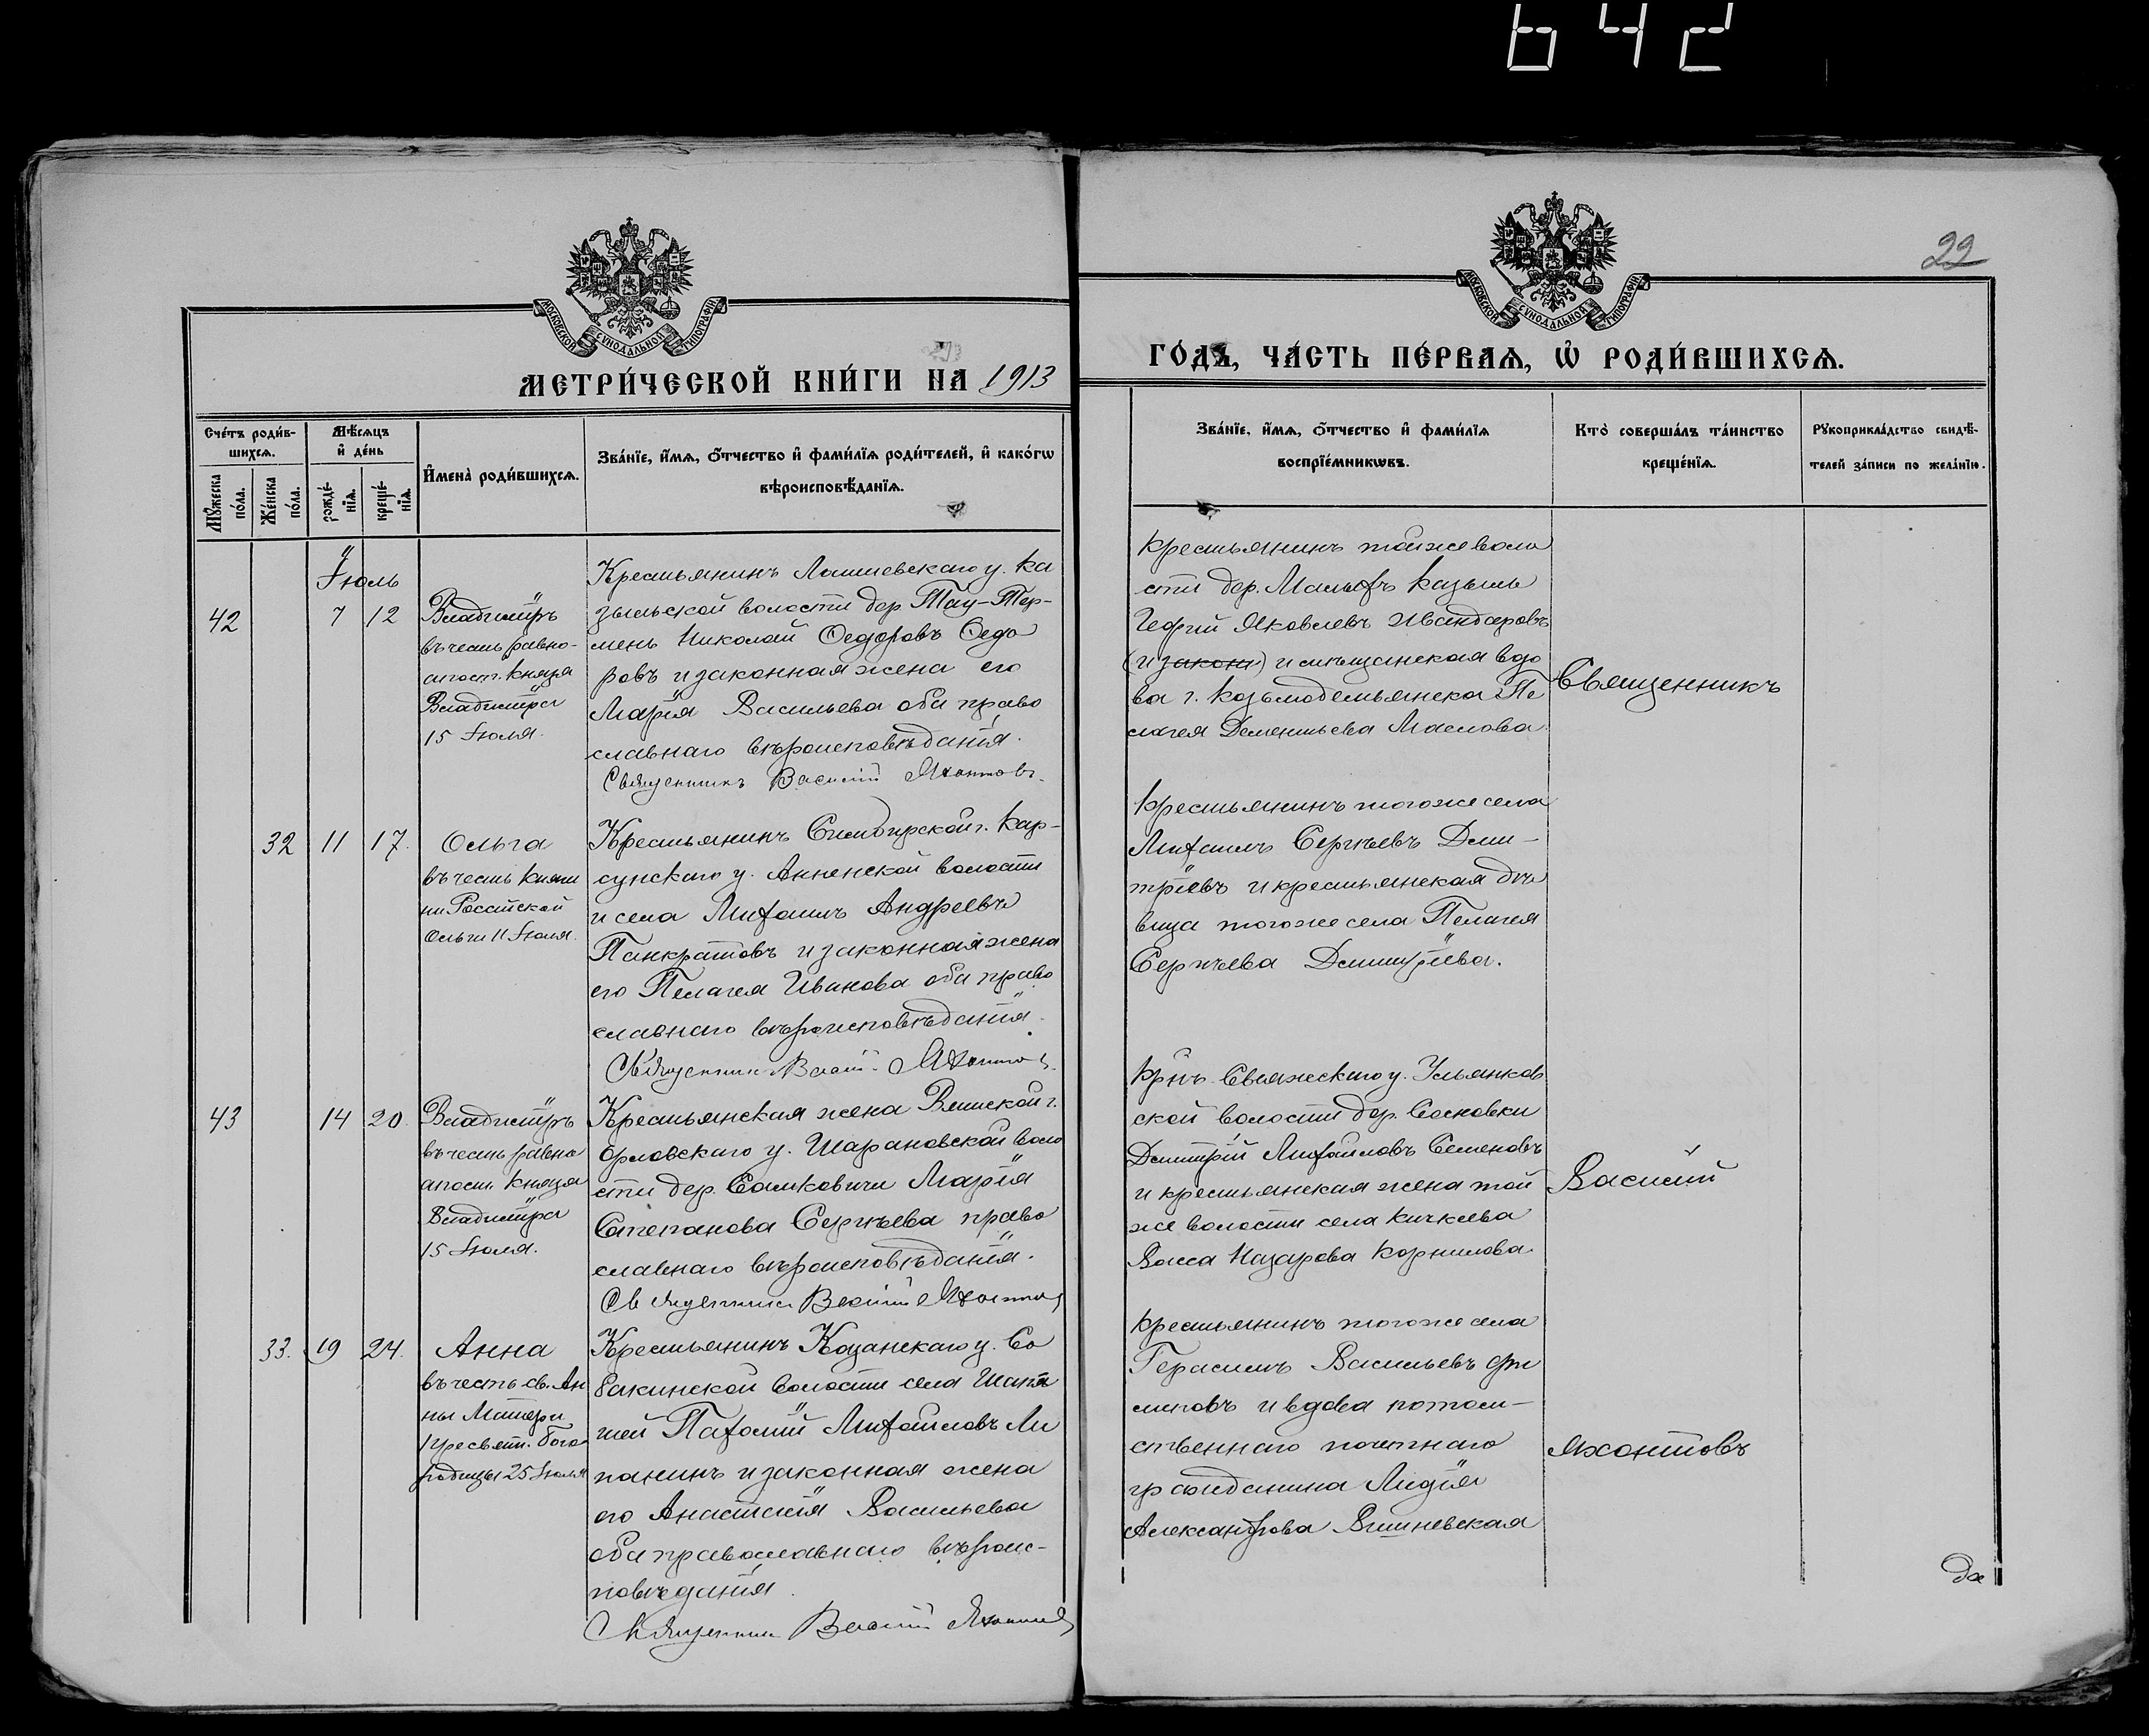 642
22
МОСКОВСКОЙ СѴНОДАЛЬНОЙ ТИПОГРАФІИ
МОСКОВСКОЙ СѴНОДАЛЬНОЙ ТИПОГРАФІИ
МЕТРИ́ЧЕСКОЙ КНИ́ГИ НА 1913
ГО́ДЪ, ЧА́СТЬ ПЕ́РВАѦ, Ѽ РОДИ́ВШИХСѦ.
Сче́тъ роди́в-
шихсѧ.
Мꙋ́жеска по́ла.
Же́нска по́ла.
Мѣ́сѧцъ
и҆ де́нь
рожде́-
нїѧ.
креще́-
нїѧ.
И҆мена̀ роди́вшихсѧ.
Зва́нїе, и҆́мѧ, ѻ҆́тчество и҆ фами́лїѧ роди́телей, и҆ како́гѡ
вѣроисповѣ́данїѧ.
Зва́нїе, и҆́мѧ, ѻ҆́тчество и҆ фами́лїѧ
воспрїе́мникѡвъ.
Кто̀ соверша́лъ та́инство
креще́нїѧ.
Рꙋкоприкла́дство свидѣ́-
телей за́писи по жела́нїю.
Іюль
42
7
12
Владиміръ
въ честь равно-
апост. Князя
Владиміра
15 Іюля.
Крестьянинъ Лаишевскаго у. Ка
зыльской волости дер Тау-Тер-
мень Николай Ѳедоровъ Ѳедо
ровъ и законная жена его
Марія Васильева оба право
славнаго вѣроисповѣданія.
Священникъ Василій Яхонтовъ.
Крестьянинъ той же воло
сти дер. Малыхъ Казыль
Георгій Яковлевъ Ивандаровъ
(и законн) и мѣщанская вдо
ва г. Козьмодемьянска Пе
лагея Дементьева Маслова.
Священникъ
32
11
17.
Ольга
въ честь Княги
ни Россійской
Ольги 11 Іюля.
Крестьянинъ Симбирской г. Кар-
сунскаго у. Анненской волости
и села Михаилъ Андреевъ
Панкратовъ и законная жена
его Пелагея Иванова оба право
славнаго вѣроисповѣданія.
Священникъ Васил. Яхонтовъ.
Крестьянинъ того же села
Михаилъ Сергѣевъ Дми-
тріевъ и крестьянская дѣ
вица того же села Пелагея
Сергѣева Димитріева.
43
14
20.
Владиміръ
въ честь равно
апост. Князя
Владиміра
15 Іюля.
Крестьянская жена Вятской г.
Орловскаго у. Шарановской воло
сти дер. Самковичи Марія
Степанова Сергѣева право
славнаго вѣроисповѣданія.
Священникъ Василій Яхонтовъ
Крнъ. Свіяжскаго у. Ульянков
ской волости дер. Сосновки
Димитрій Михайловъ Семеновъ
и крестьянская жена той
же волости села Кичкеева
Васса Назарова Корнилова.
Василій
33.
19
24.
Анна
въ честь св. Ан
ны Матери
Пресвят. Бого
родицы 25 Іюля
Крестьянинъ Казанскаго у. Со
бакинской волости села Шапк
шей Пахомій Михайловъ Ли
панинъ и законная жена
его Анастасія Васильева
оба православнаго вѣроис-
повѣданія.
Священникъ Василій Яхонтовъ
Крестьянинъ того же села
Герасимъ Васильевъ Фи
липовъ и вдова потом-
ственнаго почетнаго
гражданина Лидія
Александрова Вишневская
Яхонтовъ